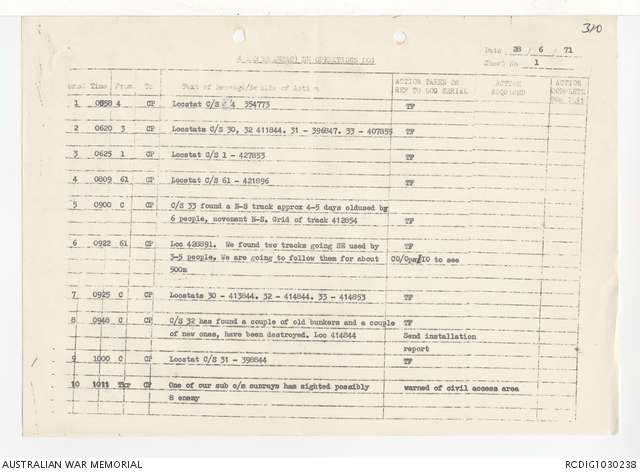 310
Date 28 / 6 / 71
OPERATIONS LOG
Sheet No 1
Serial Time From To Text of Message/Details of Action ACTION TAKEN OR REF TO LOG SERIAL ACTION REQUIRED ACTION COMPLETE
1 0658 4 CP Locstat C/S 4 354773 TF
2 0620 3 CP Locstats C/S 30, 32 411844. 31 - 396847. 33 - 407855 TF
3 0625 1 CP Locstat C/S 1 - 427853 TF
4 0809 61 CP Locstat C/S 61 - 421896 TF
5 0900 C CP C/S 33 found a N-S track approx 4-5 days oldused by
6 people, movement N-S. Grid of track 412854 TF
6 0922 61 CP Loc 428891. We found two tracks going SE used by TF
3-5 people. We are going to follow them for about CO/Ops/IO to see
500m
7 0925 C CP Locstats 30 - 413844. 32 - 414844. 33 - 414853 TF
8 0948 C CP C/S 32 has found a couple of old bunkers and a couple TF
of new ones, have been destroyed. Loc 414844 Send installation
report
9 1000 C CP Locstat C/S 31 - 398844 TF
10 1011 Tkr CP One of our sub c/s sunrays has sighted possibly warned of civil access area
8 enemy
AUSTRALIAN WAR MEMORIAL
RCDIG1030238